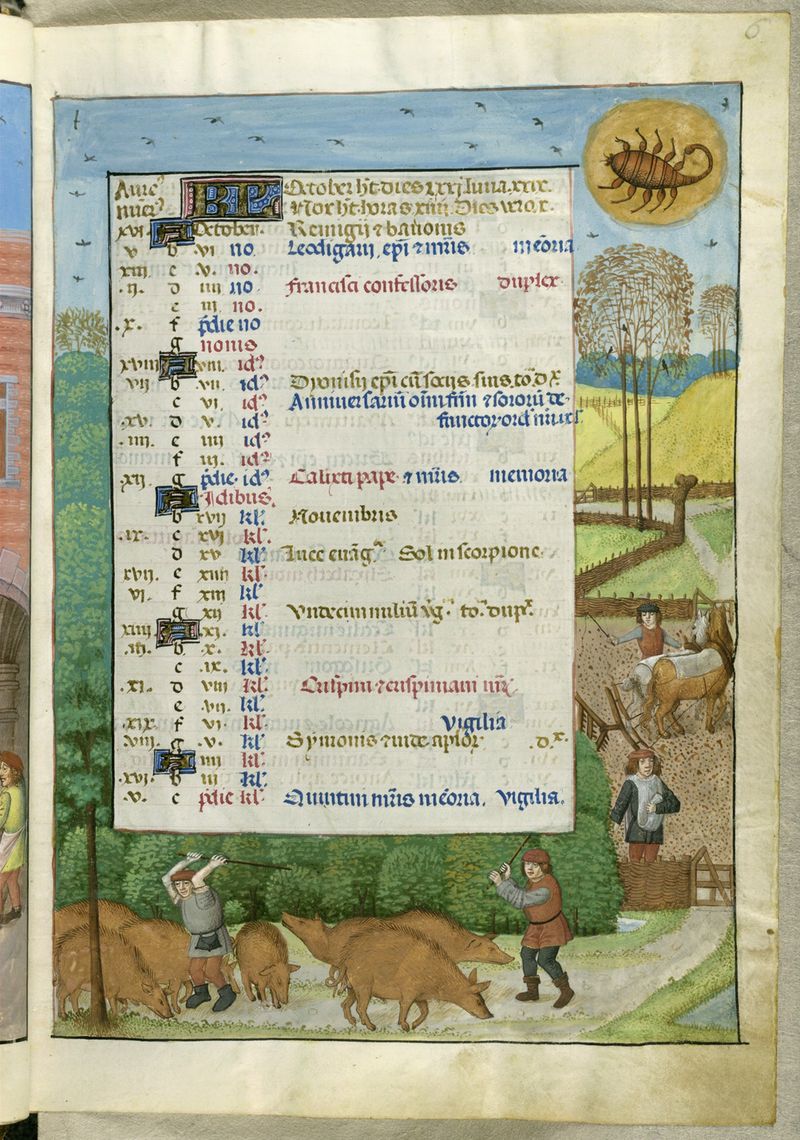 Aure⁹ KL October ht dies xxxi luna xxix.
nuer⁹ Nox ht horas xiiii. Dies vero x.
xvi. A October. Remigii ⁊ bauonis
v b vi no Leodigarii, epi ⁊ mris memoria
xiii c v. no.
.ii. d iiii no francisci confessoris duplex
e iii no.
.x. f pdie no
g nonis
xviii A viii. id⁹
vii b vii. id⁹ Dyonisii epi cu sociis suis to. dx
c vi. id⁹ Anniversariu oim frm ⁊ sororu de-
.xv. d v. id⁹ functor ord
.iiii. e iiii id⁹
f iii. id⁹
.xii. g pdie. id⁹ Calixti pape ⁊ mris memoria
A Idibus.
b xvii kl. Nouembris
.ix. c xvi kl.
d xv kl. Luce euāg. Sol in scorpione.
xvii. e xiiii kl.
vi. f xiii kl.
g xii kl. Undecim miliu vg. to. dup.
xiiii A .xi. kl.
.iii. b .x. kl.
c .ix. kl.
.xi. d viii kl. Crispini ⁊ crispiniani mr.
e vii. kl.
.xix. f vi. kl. vigilia
.viii. g .v. kl. Symonis ⁊ iude aplor .d.x.
A iiii kl.
.xvi. b iii kl.
.v. c pdie kl. Quintini mris meoria. vigilia.
6